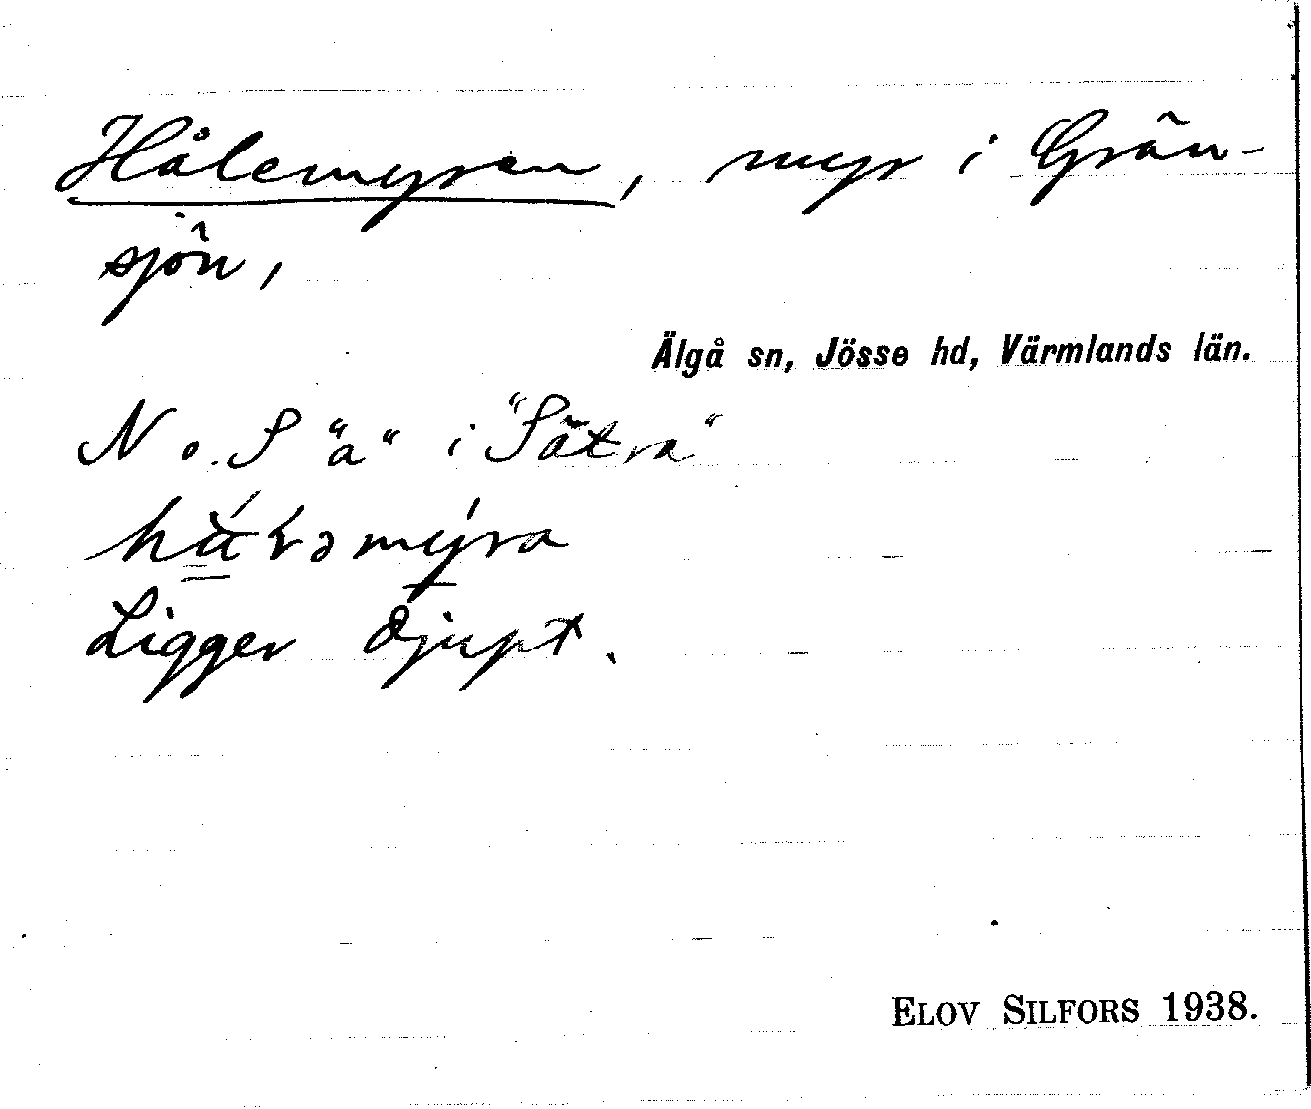 Hålemyren, myr i Grän-
sjön,
Älgå sn, Jösse hd, Värmlands län.
N o. S "a" i "Sätra"
Ligger djupt.
ELOV SILFORS 1938.